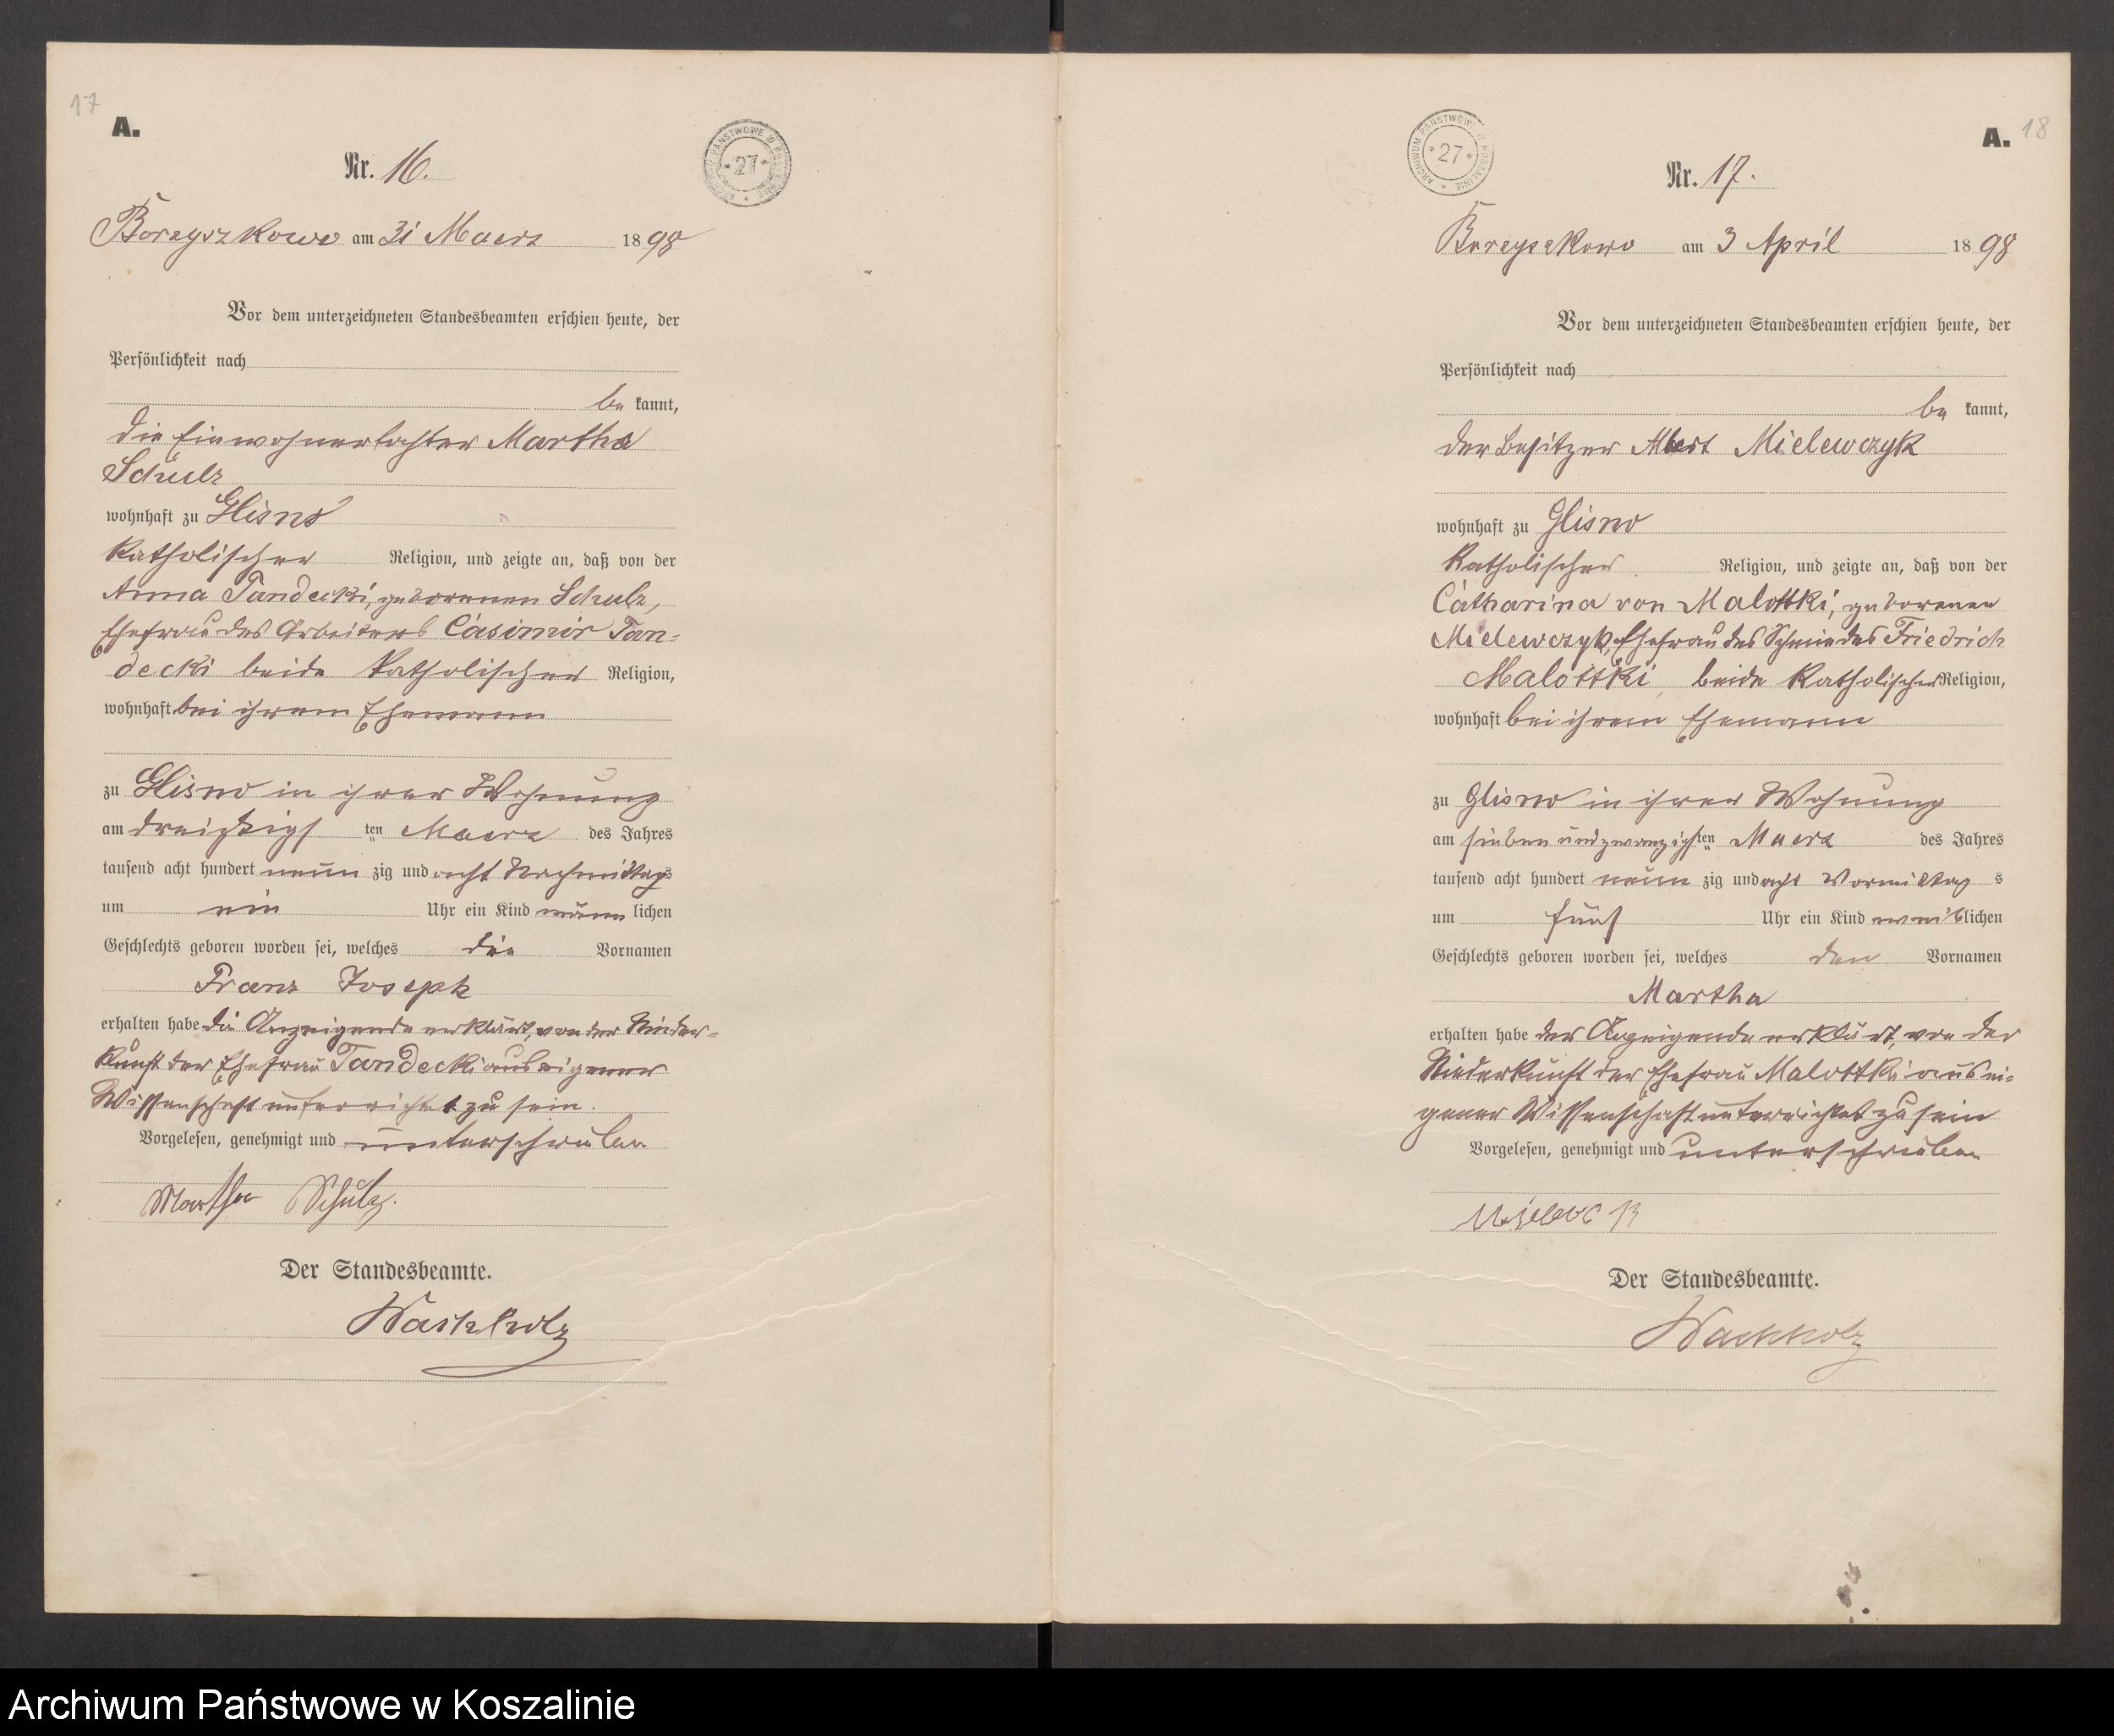 17
A.
Nr. 16.
ARCHIWUM PAŃSTWOWE W KOSZALINIE * 27 *
Boreyszkowo am 31 Maerz 1898
Vor dem unterzeichneten Standesbeamten erschien heute, der
Persönlichkeit nach
be kannt,
die Einwohnertochter Martha
Schulz
wohnhaft zu Glisno
katholischer Religion, und zeigte an, daß von der
Anna Tandecki, geborenen Schulz,
Ehefrau des Arbeiters Casimir Tan-
decki beide katholischer Religion,
wohnhaft bei ihrem Ehemann
zu Glisno in ihrer Wohnung
am dreißigs ten Maerz des Jahres
tausend acht hundert neun zig und acht Nachmittags
um ein Uhr ein Kind männ lichen
Geschlechts geboren worden sei, welches die Vornamen
Franz Joseph
erhalten habe die Anzeigende erklärt, von der Nieder-
kunft der Ehefrau Tandecki aus eigener
Wissenschaft unterrichtet zu sein.
Vorgelesen, genehmigt und unterschrieben
Martha Schulz.
Der Standesbeamte.
Wachholz
A. 18
ARCHIWUM PAŃSTWOWE W KOSZALINIE * 27 *
Nr. 17.
Boreyszkowo am 3 April 1898
Vor dem unterzeichneten Standesbeamten erschien heute, der
Persönlichkeit nach
be kannt,
der Besitzer Albert Mielewczyk
wohnhaft zu Glisno
katholischer Religion, und zeigte an, daß von der
Catharina von Malottki, geborenen
Mielewczyk, Ehefrau des Schmiedes Friedrich
Malottki, beide katholischer Religion,
wohnhaft bei ihrem Ehemann
zu Glisno in ihrer Wohnung
am sieben und zwanzigsten Maerz des Jahres
tausend acht hundert neun zig und acht Vormittag s
um fünf Uhr ein Kind weiblichen
Geschlechts geboren worden sei, welches den Vornamen
Martha
erhalten habe der Anzeigende erklärt, von der
Niederkunft der Ehefrau Malottki aus ei-
gener Wissenschaft unterrichtet zu sein
Vorgelesen, genehmigt und unterschrieben
Der Standesbeamte.
Wachholz
Archiwum Państwowe w Koszalinie